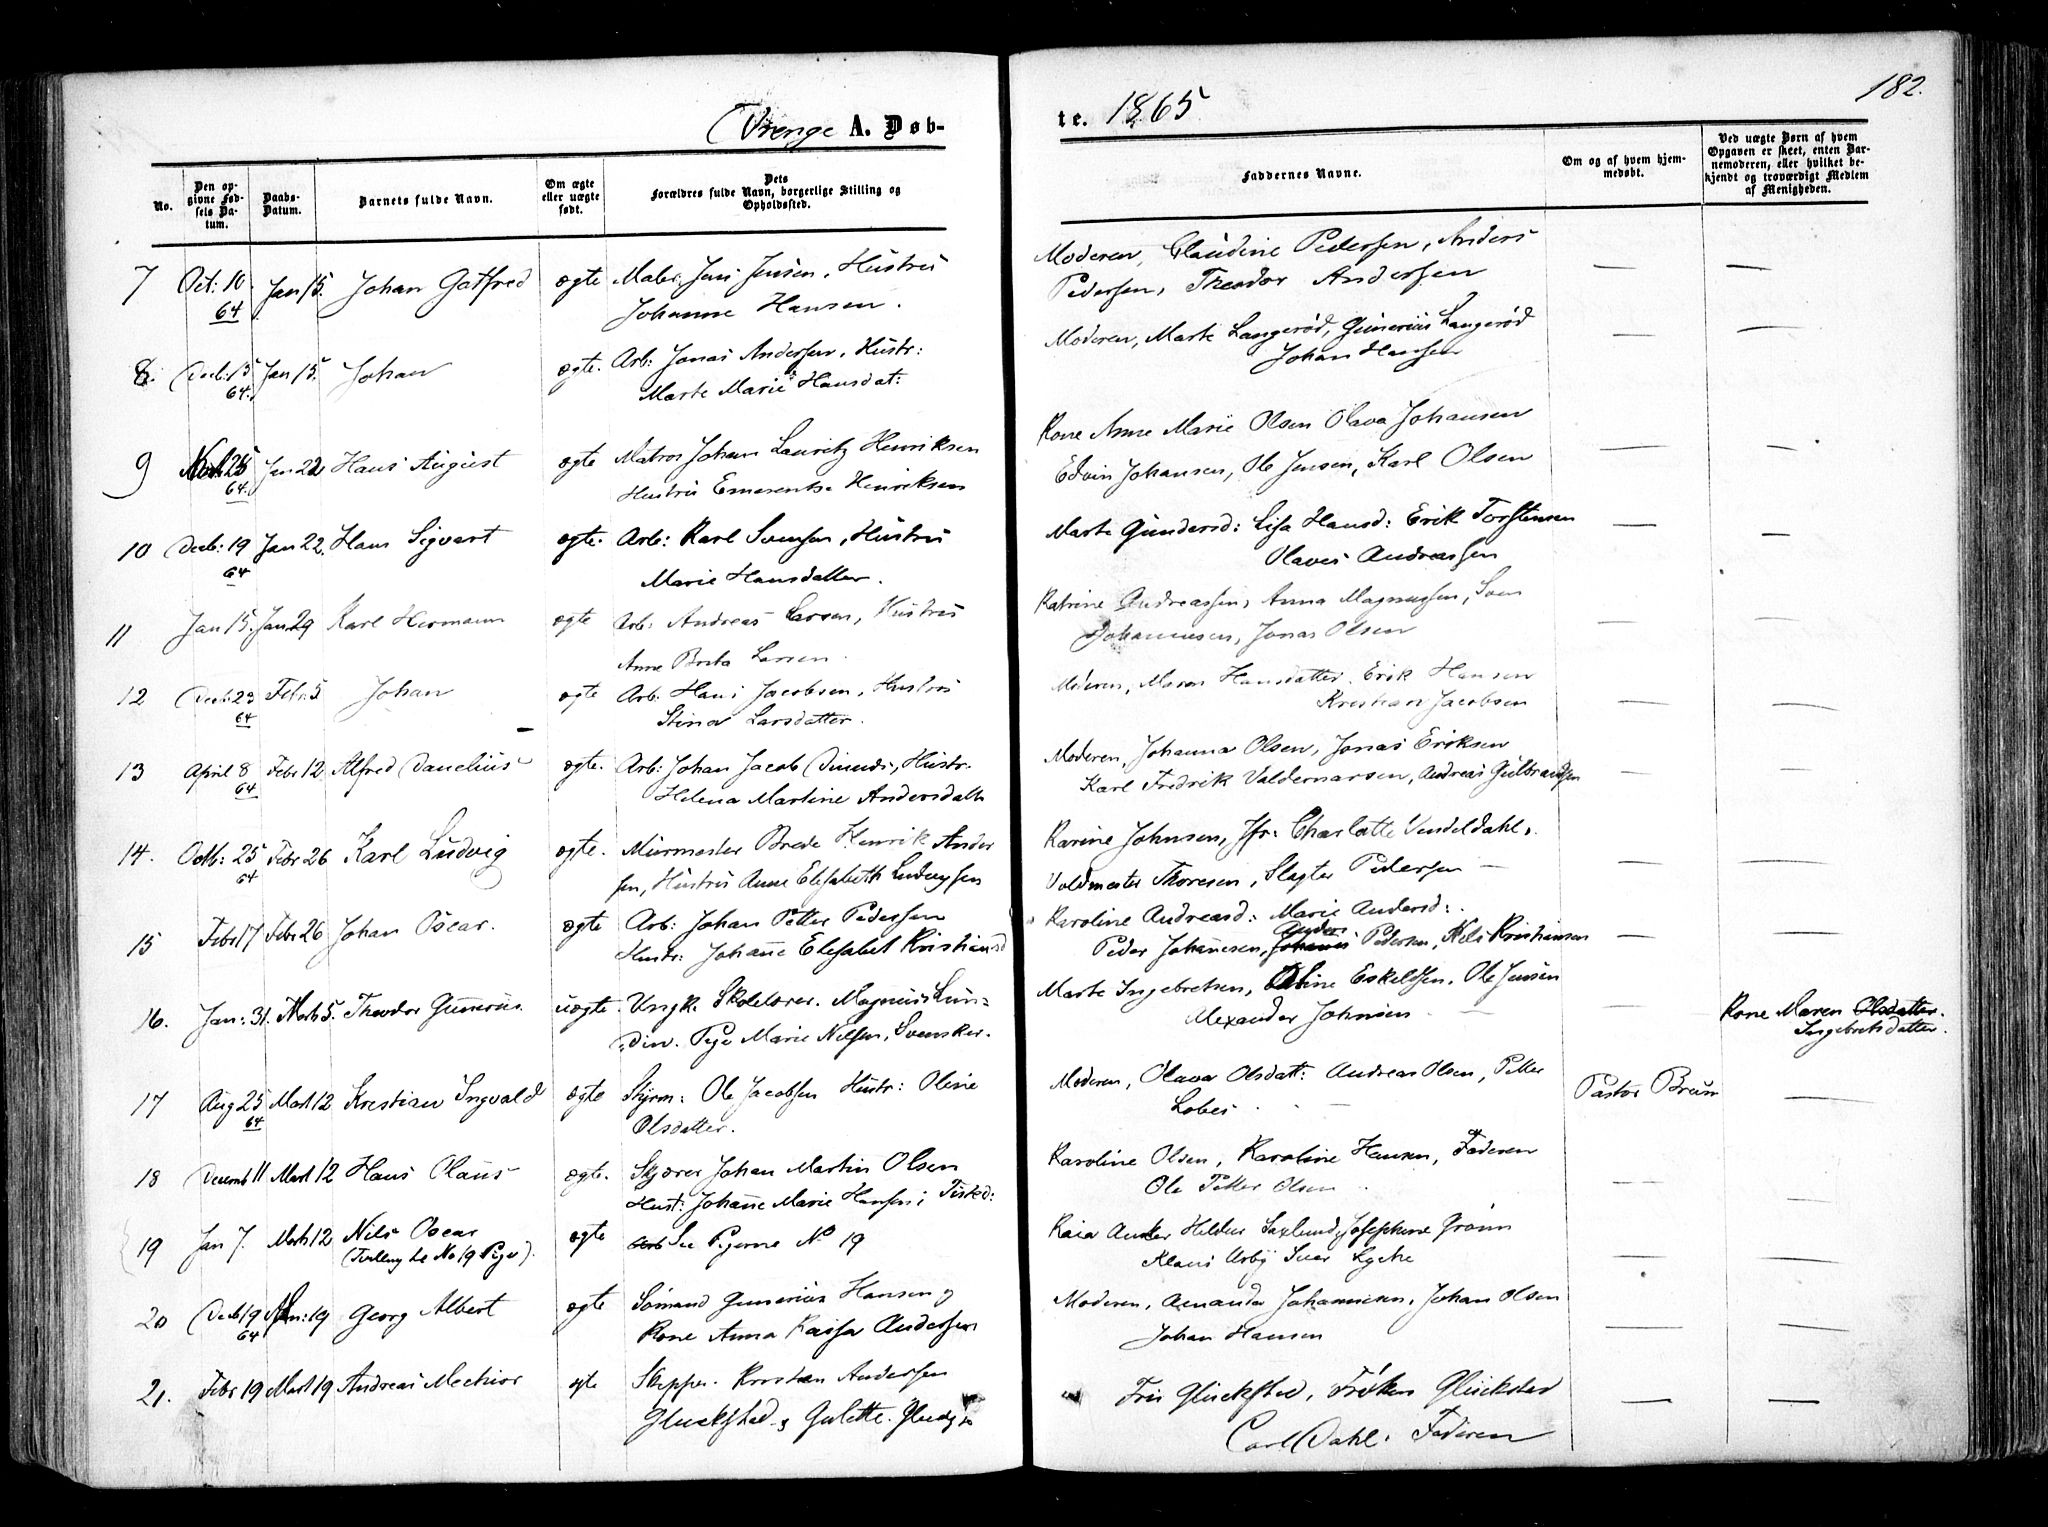 182.
Drenge A. Døb-
te. 1865
No.
Den opgivne Fødsels Datum.
Daabs-Datum.
Barnets fulde Navn.
Om ægte eller uægte født.
Dets Forældres fulde Navn, borgerlige Stilling og Opholdssted.
Faddernes Navne.
Om og af hvem hjemmedøbt.
Ved uægte Børn af hvem Opgaven er skeet, enten Barnemoderen, eller hvilket bekjendt og troværdigt Medlem af Menigheden.
7 Oct: 10 64 Jan 15. Johan Gotfred ægte Maler Jens Jensen, Hustru
Johanne Hansen.
Moderen, Claudine Pedersen, Anders
Pedersen, Theodor Andersen — —
8. Decb: 15 64. Jan 15. Johan ægte. Arb: Jonas Andersen, Hustr:
Marte Marie Hansdat:
Moderen, Marte Langerød, Gunerius Langerød
Johan Hansen — —
9 25 64. Jan 22 Hans August ægte Matros Johan Lauritz Henriksen
Hustru Emerentse Henriksen
Kone Anne Marie Olsen Olava Johansen
Edvin Johansen, Ole Jensen, Karl Olsen — —
10 Decb: 19 64 Jan 22. Hans Sigvart ægte. Arb: Karl Svensen, Hustru
Marie Hansdatter.
Marte Gundersd: Lisa Hansd: Erik Torstensen
Olaves Andreassen — —
11 Jan 15. Jan 29 Karl Hermann ægte Arb: Andreas Larsen, Hustru
Anne Brita Larsen.
Katrine Andreassen, Anna Magnussen, Sven
Johannesen, Jonas Olsen — —
12 Decb: 23 64 Febr. 5 Johan ægte Arb. Hans Jacobsen, Hustru
Stina Larsdatter.
Moderen, Maren Hansdatter, Erik Hansen
Kristian Jacobsen — —
13 April 8 64 Febr 12 Alfred Danelius ægte. Arb: Johan Jacob Hustr.
Helena Martine Andersdatt
Moderen, Johanna Olsen, Jonas Eriksen
Karl Fredrik Valdemarsen, Andreas Gulbrandsen — —
14. Octb: 25 64 Febr 26 Karl Ludvig ægte. Murmester Brede Henrik Ander
sen, Hustru Anne Elisabeth Ludvigsen
Karine Johnsen, Jfr: Charlotte Vendeldahl,
Voldmester Thoresen, Slagter Pedersen — — —
15 Febr 17 Febr 26 Johan Oscar. ægte Arb: Johan Petter Pedersen
Hustr: Johane Elisabet Kristiansd
Karoline Andreasd: Marie Andersd:
Peder Johanesen, Johanes Anders Pedersen, Nels Kristiansen — —
16. Jan: 31. Marts 5. Theodor Gunerius. uægte. Ungk. Skolelærer. Magnus Lun=
din. Pige Marie Nelsen, Svensker.
Marte Ingebretsen, Oline Eskelssen, Ole Jensen
Alexander Johnsen — — Kone Maren Olsdatter.
Ingebretsdatter.
17 Aug 25 64 Mart 12 Kristian Ingvald ægte Styrm: Ole Jacobsen Hustr: Oline
Olsdatter.
Moderen, Olava Olsdatt: Andreas Olsen, Petter
Lobes — Pastor Bruun —
18 Decemb 11 Mart 12 Hans Claus ægte. Skjærer Johan Martin Olsen
Hust: Johane Marie Hansen i Tisted:
Karoline Olsen, Karoline Hansen, Faderen
Ole Petter Olsen — —
19 Jan 7. Marts 12 Nils Oscar ægte See Pigerne No 19
(Tvilling til No 19 Pige).
Kaia Anker Hilda Saxlund, Josephine Grønn
Klaus Arbÿ Iver Lycke — —
20 Decb 19 64 19 Georg Albert ægte Sømand Gunerius Hansen og
Kone Anna Kaisa Andersen
Moderen, Amanda Johannesen, Johan Olsen
Johan Hansen — —
21. Febr 19 Mart 19 Andreas Mechior ægte Skipper Kristian Andersen
Gluckstad og Gulette
Fru Gluckstad, Frøken Gluckstad
Carl Dahl. Faderen — —